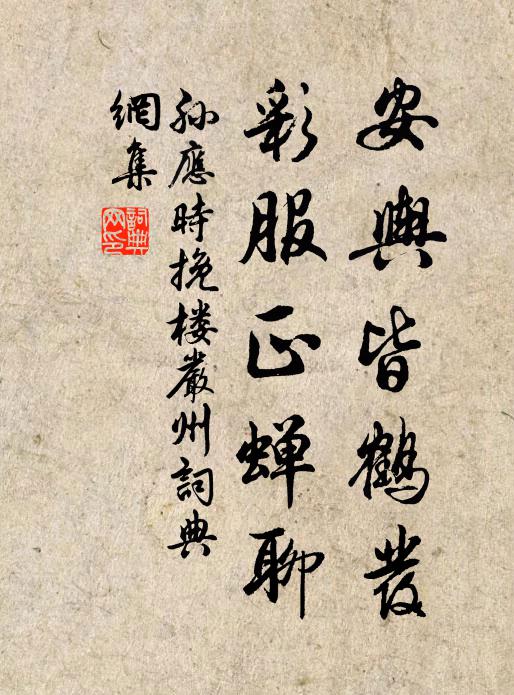 安輿皆鶴發
彩服正蟬聊
孫應時挽楼嚴州詞典
網集
詞典
网印